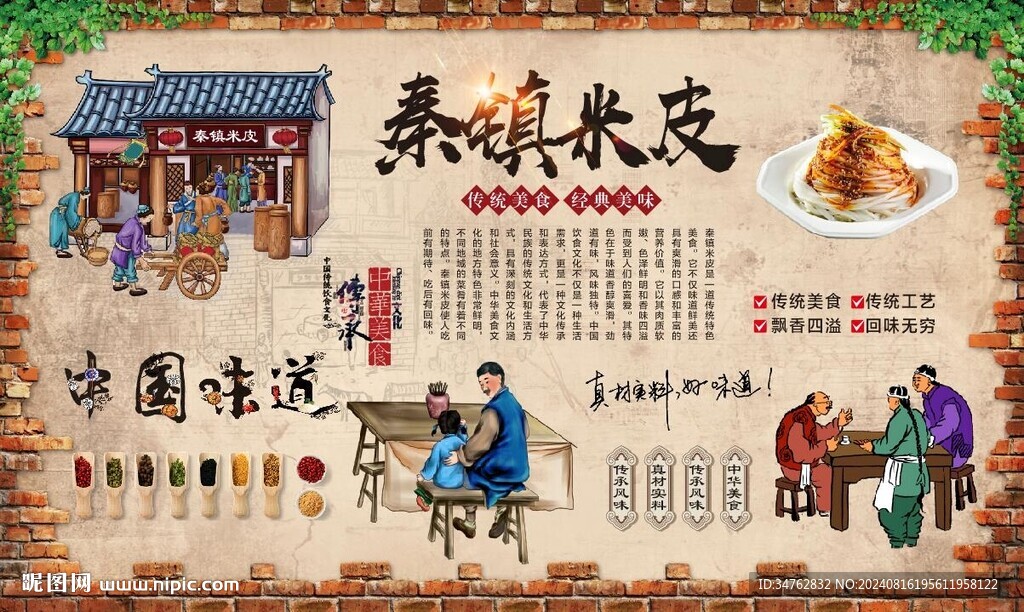 秦镇米皮
秦镇米皮
传统美食 经典美味
秦镇米皮是一道传统特色
美食。它不仅味道鲜美还
具有爽滑的口感和丰富的
营养价值。它以其肉质软
嫩、色泽鲜明和香味四溢
而受到人们的喜爱。其特
色在于味道香醇爽滑,劲
道有味,风味独特。中国
饮食文化不仅是一种生活
需求,更是一种文化传承
和表达方式,代表了中华
民族的传统文化和生活方
式,具有深刻的文化内涵
和社会意义。中华美食文
化的地方特色非常鲜明,
不同地域的菜肴有着不同
的特点。秦镇米皮使人吃
前有期待、吃后有回味。
中国传统饮食文化
传承
中華美食
文化
传统美食
传统工艺
飘香四溢
回味无穷
中国味道
真材实料,好味道!
传承风味
真材实料
传承风味
中华美食
昵图网 www.nipic.com
ID:34762832 NO:20240816195611958122